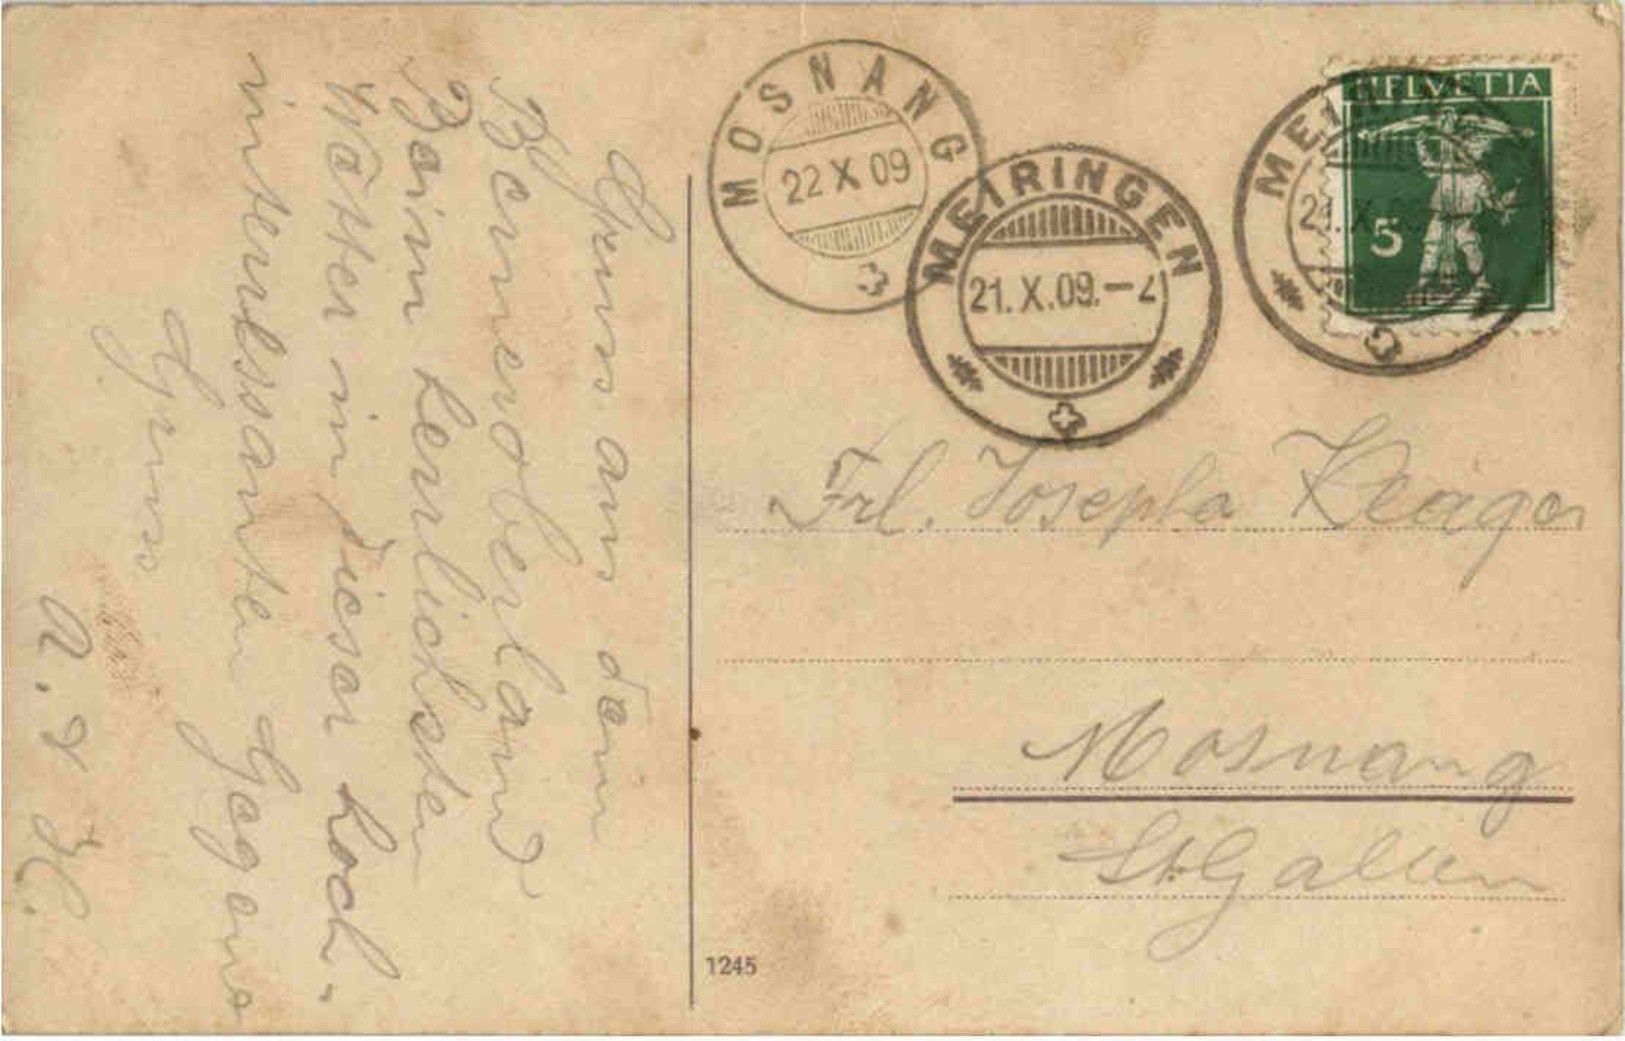 Gruss aus dem
Berneroberland
Beim herrlichsten
Wetter in dieser hoch-
interessanten Gegend
Gruss
MOSNANG
22 X 09
MEIRINGEN
21. X. 09. – 2
HELVETIA
5
Frl. Josepha
Mosnang
St. Gallen
1245